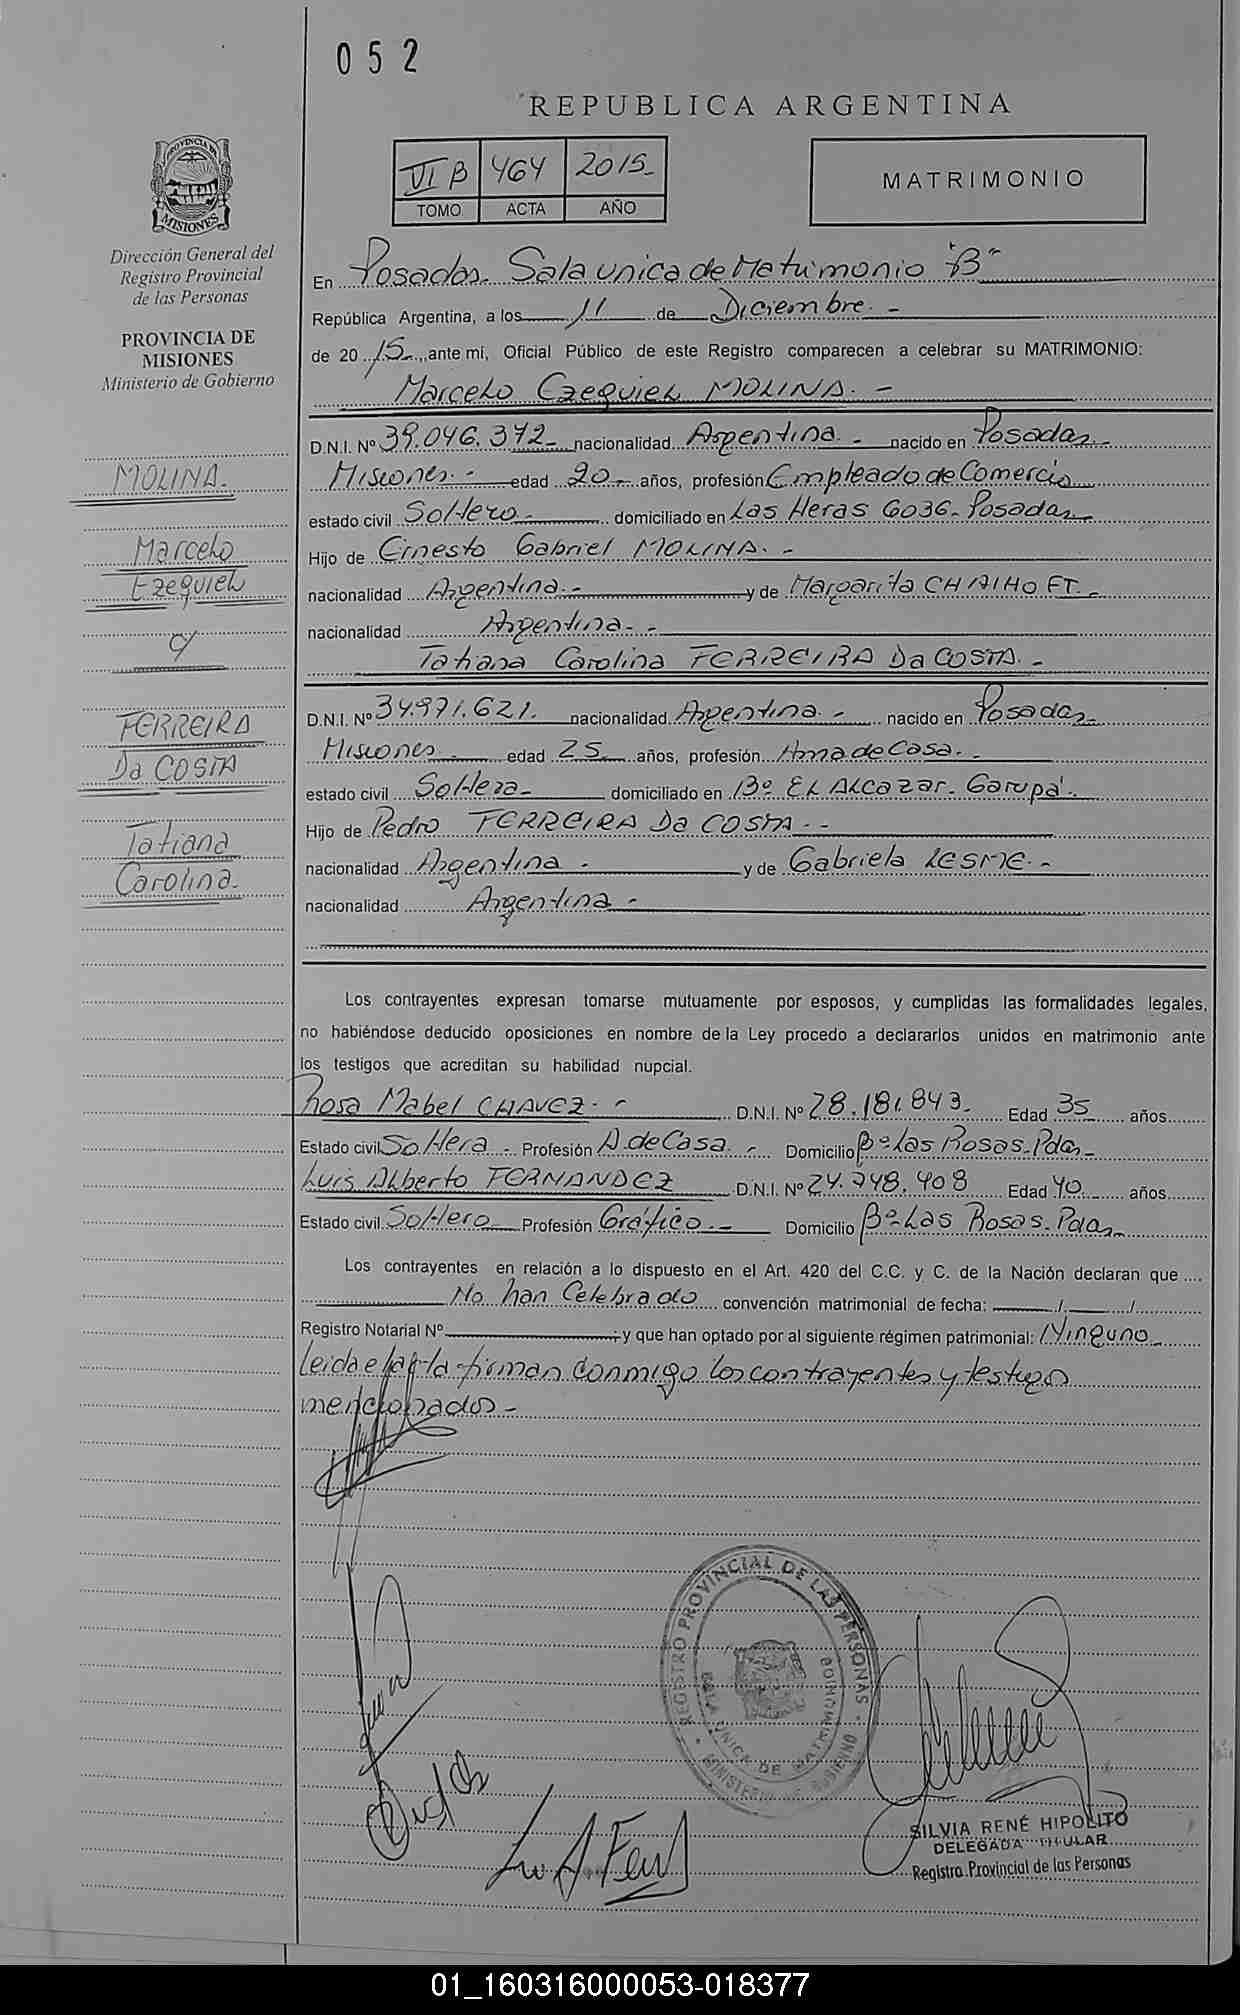 052
REPUBLICA ARGENTINA
VI B 464 2015-
TOMO ACTA AÑO
MATRIMONIO
PROVINCIA DE
MISIONES
Dirección General del
Registro Provincial
de las Personas
PROVINCIA DE
MISIONES
Ministerio de Gobierno
MOLINA.
Marcelo
Ezequiel
c/
FERREIRA
Da COSTA
Tatiana
Carolina.
En Posadas. Sala unica de Matrimonio "B"
República Argentina, a los 11 de Diciembre.-
de 2015, ante mí, Oficial Público de este Registro comparecen a celebrar su MATRIMONIO:
Marcelo Ezequiel MOLINA.-
D.N.I. Nº 39.046.372- nacionalidad Argentina.- nacido en Posadas-
Misiones.- edad 20- años, profesión Empleado de Comercio
estado civil Soltero- domiciliado en Las Heras 6036- Posadas-
Hijo de Ernesto Gabriel MOLINA.-
nacionalidad Argentina.- y de Margarita
nacionalidad Argentina.-
Tatiana Carolina FERREIRA Da COSTA.-
D.N.I. Nº 34.971.621. nacionalidad Argentina.- nacido en Posadas-
Misiones- edad 25 años, profesión Ama de Casa.-
estado civil Soltera- domiciliado en Bº EL ALCazar. Garupá.
Hijo de Pedro FERREIRA Da COSTA.-
nacionalidad Argentina.- y de Gabriela LESME.-
nacionalidad Argentina-
Los contrayentes expresan tomarse mutuamente por esposos, y cumplidas las formalidades legales,
no habiéndose deducido oposiciones en nombre de la Ley procedo a declararlos unidos en matrimonio ante
los testigos que acreditan su habilidad nupcial.
Rosa Mabel CHAVEZ.- D.N.I. Nº 28.181.843. Edad 35 años
Estado civil Soltera- Profesión A. de Casa.- Domicilio Bº Las Rosas-Pdas-
Luis Alberto FERNANDEZ D.N.I. Nº 24.748.408 Edad 40 años
Estado civil Soltero- Profesión Gráfico.- Domicilio Bº Las Rosas. Pdas-
Los contrayentes en relación a lo dispuesto en el Art. 420 del C.C. y C. de la Nación declaran que
No han Celebrado convención matrimonial de fecha: / /
Registro Notarial Nº ; y que han optado por al siguiente régimen patrimonial: Ninguno-
Leida el acta firman conmigo los contrayentes y testigos
mencionados-
REGISTRO PROVINCIAL DE LAS PERSONAS
SALA UNICA DE MATRIMONIOS
MINISTERIO DE GOBIERNO
SILVIA RENÉ HIPOLITO
DELEGADA TITULAR
Registro Provincial de las Personas
01_160316000053-018377